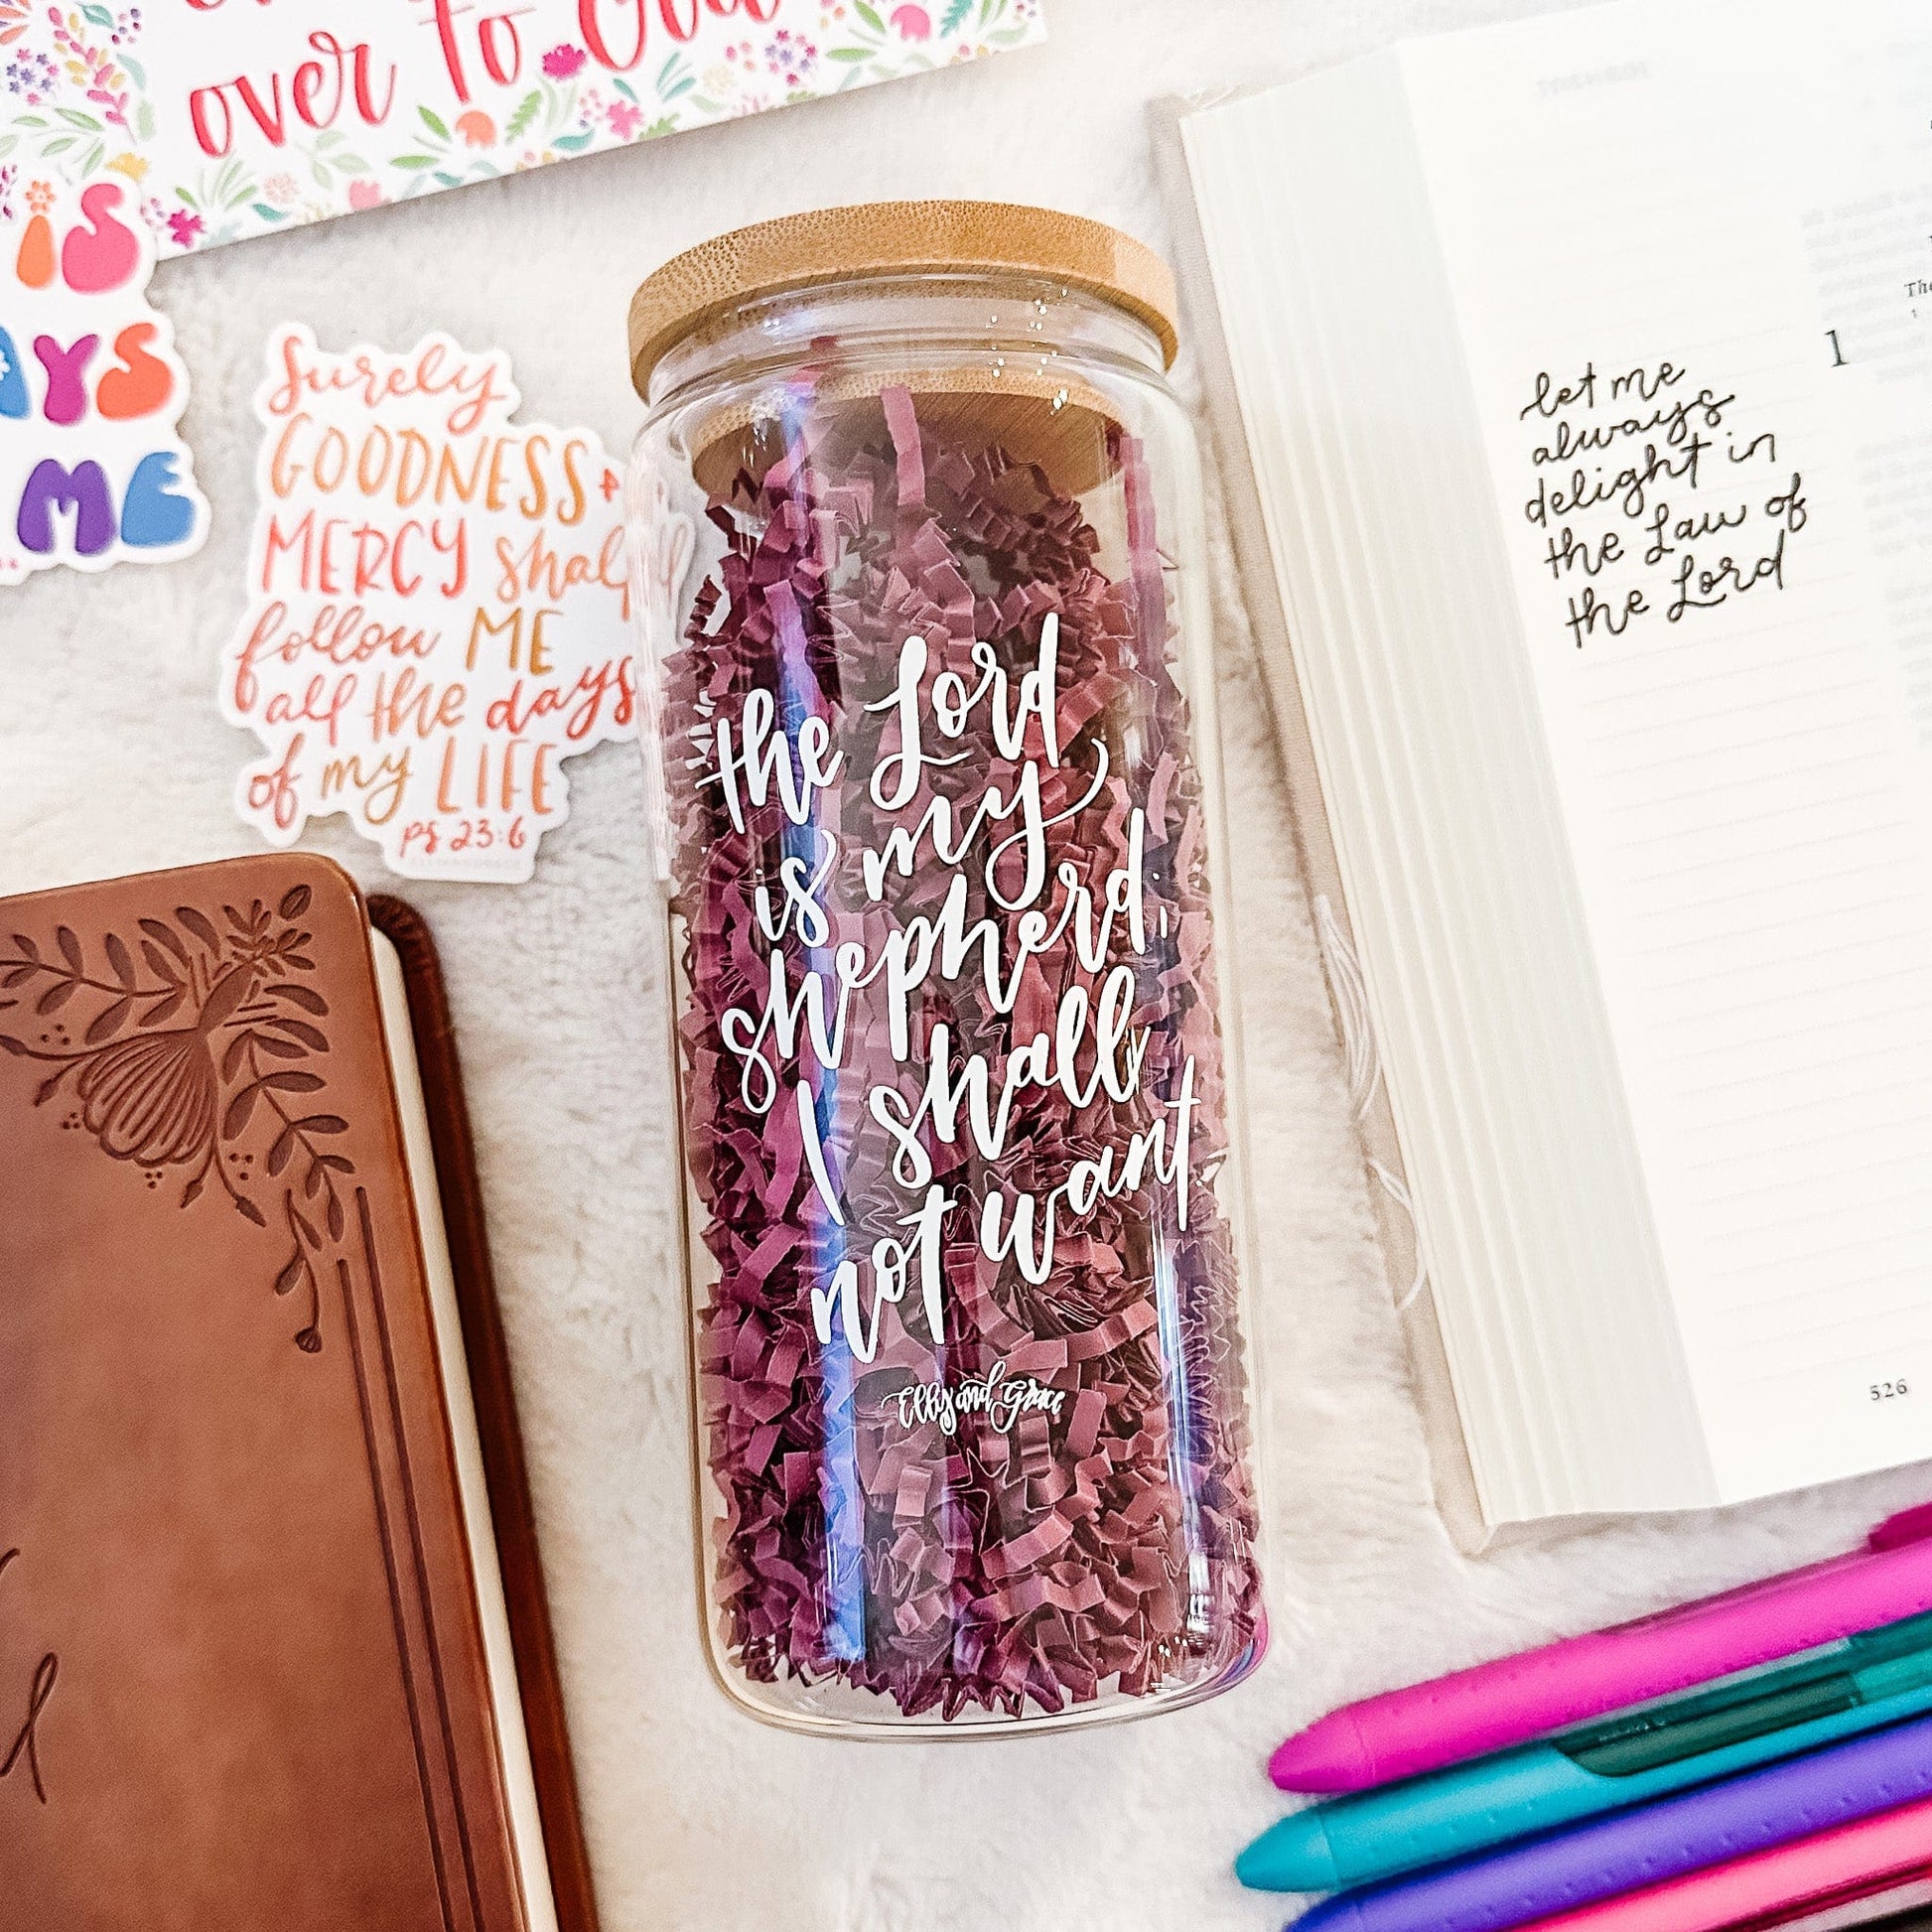 over to God
is
AYS
ME
Surely
GOODNESS +
MERCY shall
follow ME
all the days
of my LIFE
PS 23:6
the Lord
is my
shepherd;
I shall
not want.
Elly and Grace
let me
always
delight in
the Law of
the Lord
1
526